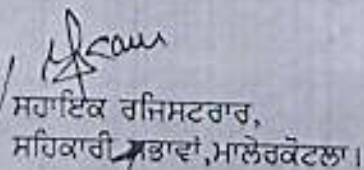 ਸਹਾਇਕ ਰਜਿਸਟਰਾਰ,
ਸਹਿਕਾਰੀ ਸਭਾਵਾਂ,ਮਾਲੇਰਕੋਟਲਾ।